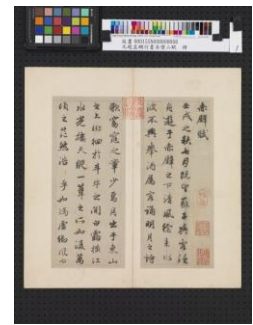 元趙孟頫行書赤壁二賦 冊
赤壁賦
壬戌之秋七月既望蘇子與客泛
舟遊于赤壁之下清風徐來水
波不興舉酒屬客誦明月之詩
歌窈窕之章少焉月出于東山
之上徘徊於斗牛之間白露橫江
水光接天縱一葦之所如凌萬
頃之茫然浩浩乎如馮虛御風而